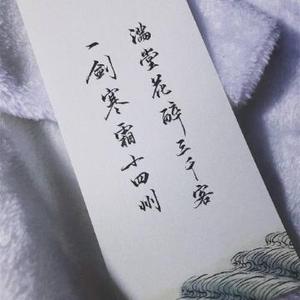 满堂花醉三千客
一剑寒霜十四州